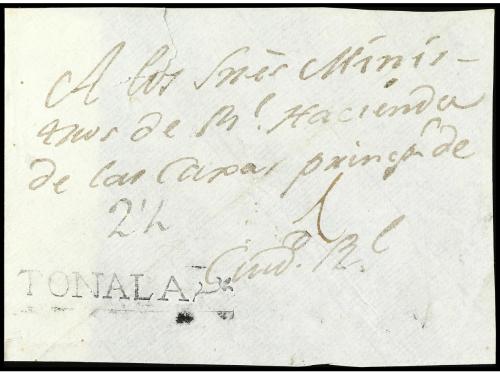 A los Srês Minis-
tros de Rl. Hacienda
de las Caxas princps. de
2½
Ciud. Rl
TONALA